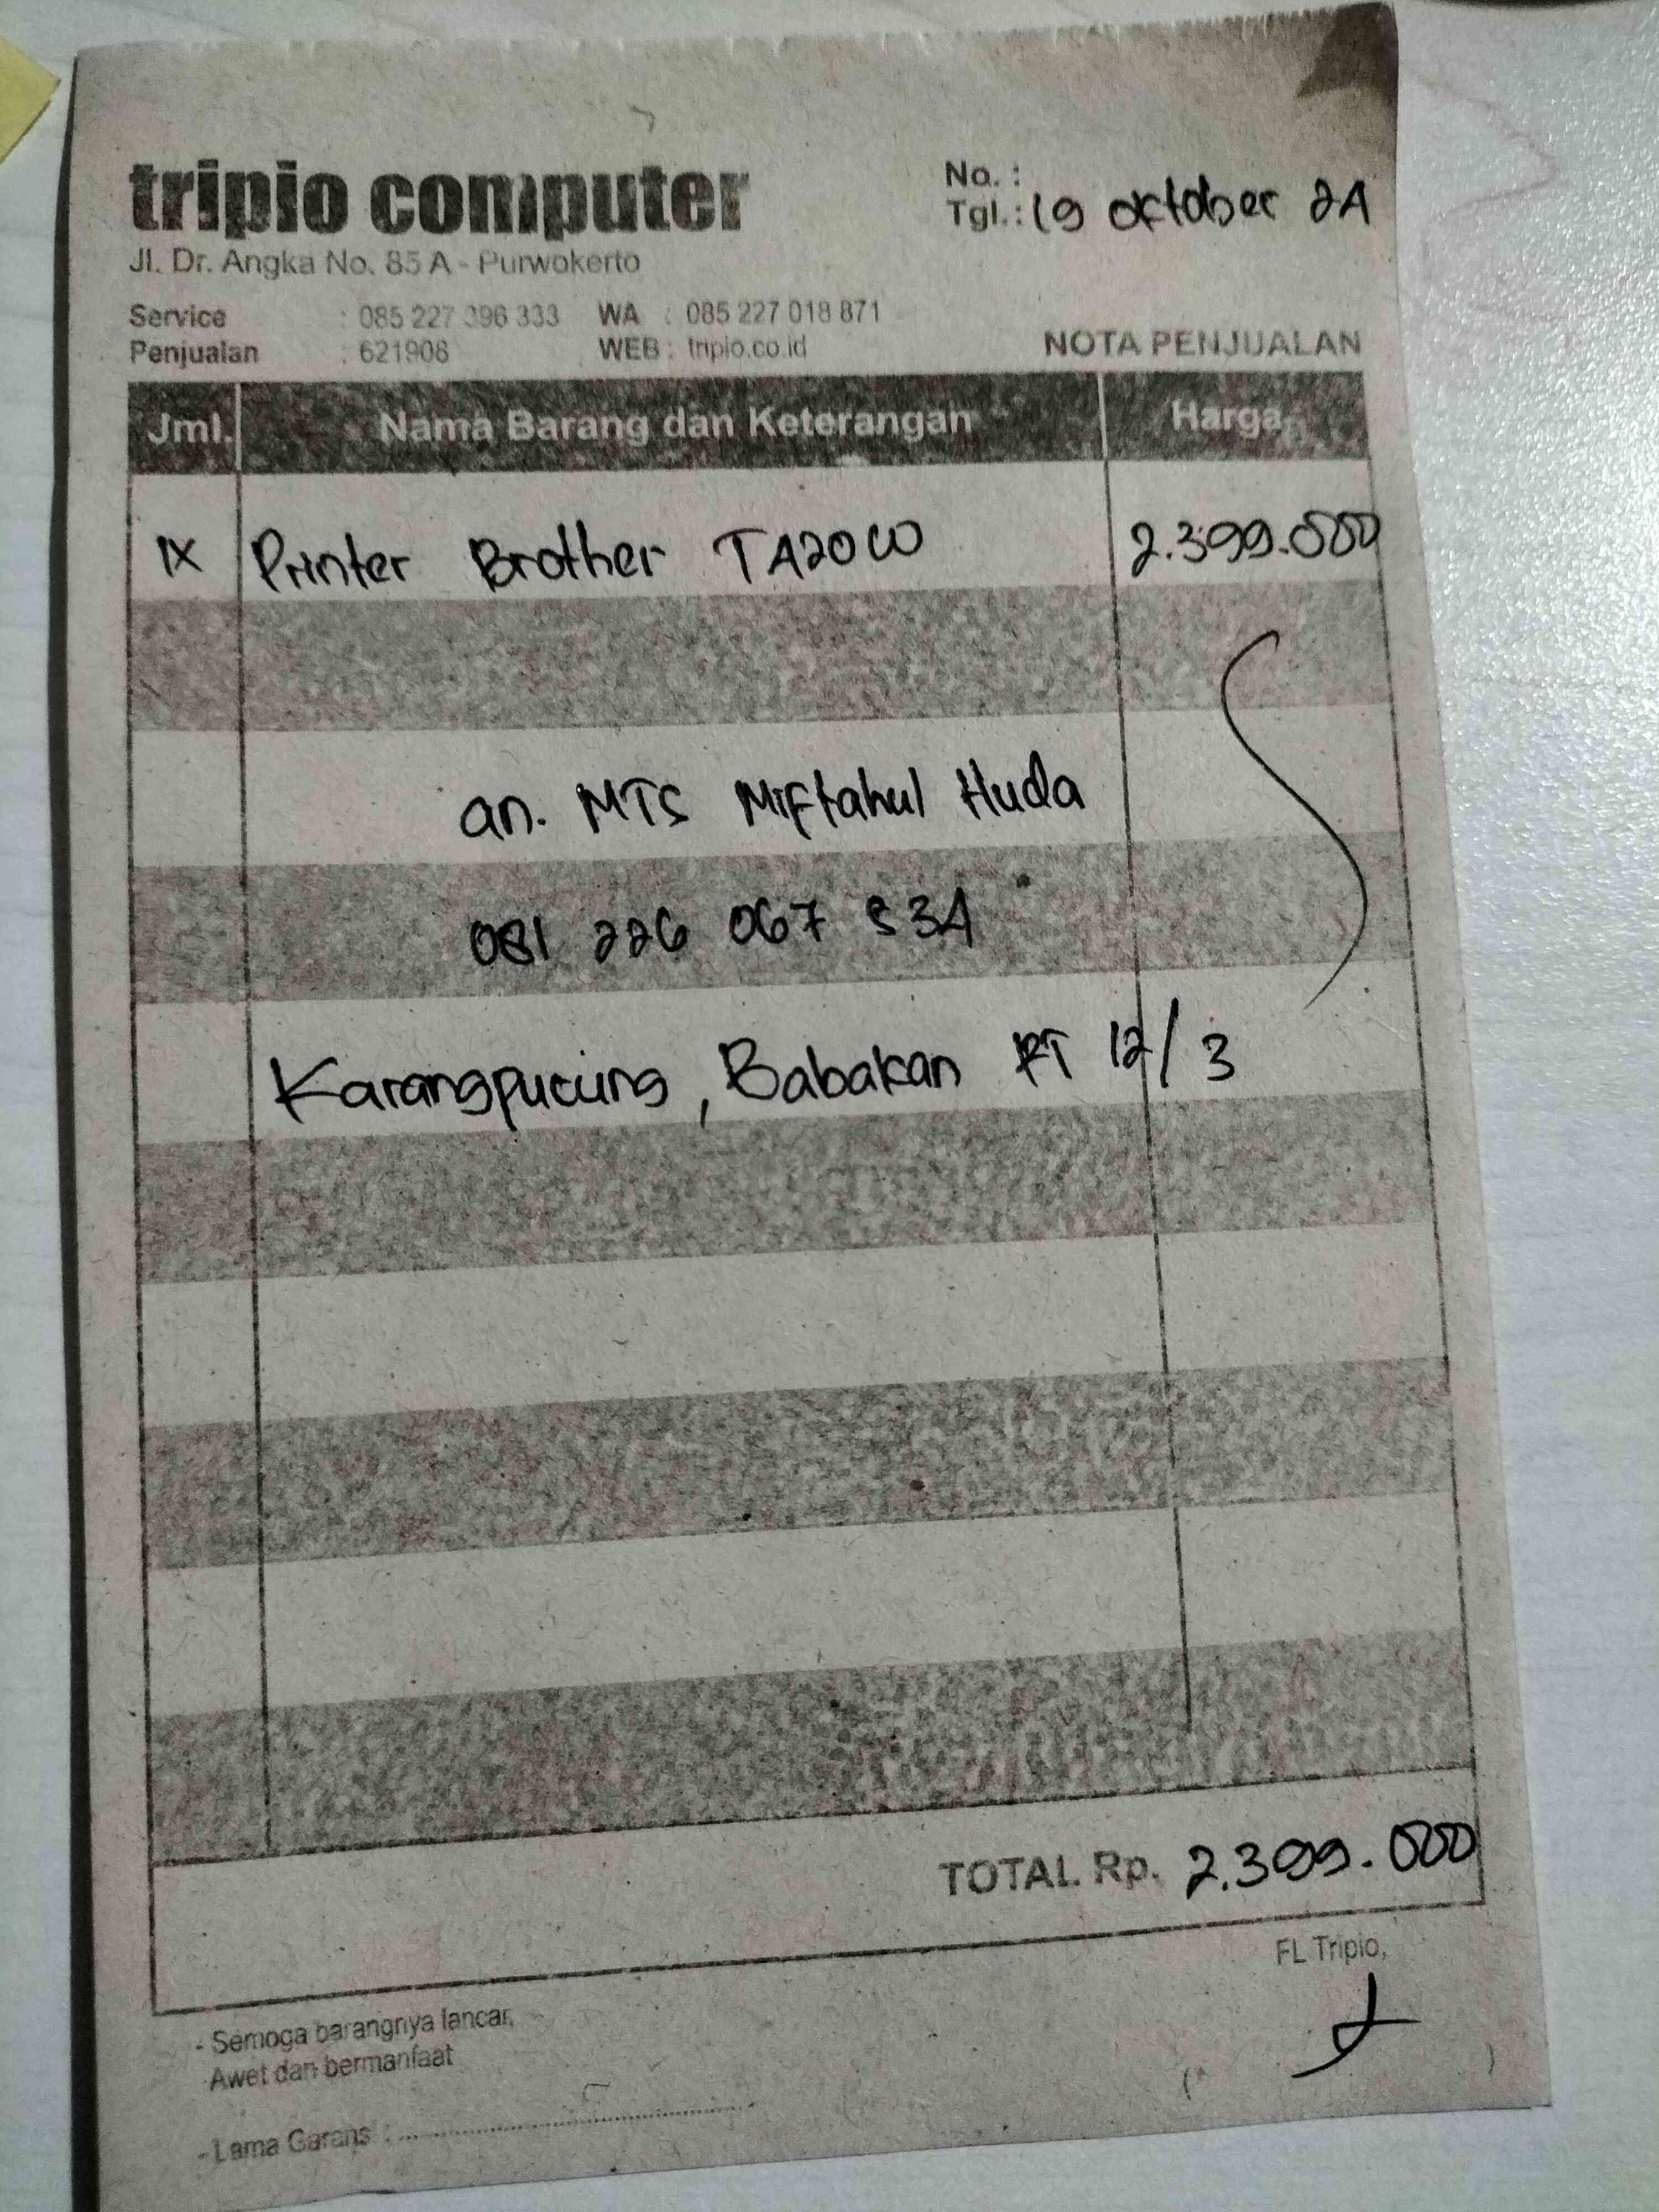 tripio computer
Jl. Dr. Angka No. 85 A - Purwokerto
No. :
Tgl. : 19 oktober 24
Service : 085 227 396 333 WA : 085 227 018 871
Penjualan : 621908 WEB : tripio.co.id
NOTA PENJUALAN
Jml. Nama Barang dan Keterangan Harga
1X Printer Brother T420W 2.399.000
an. MTS Miftahul Huda
081 226 067 834
Karangpucung, Babakan RT 12/3
TOTAL Rp. 2.399.000
FL Tripio,
- Semoga barangnya lancar,
Awet dan bermanfaat
- Lama Garans :